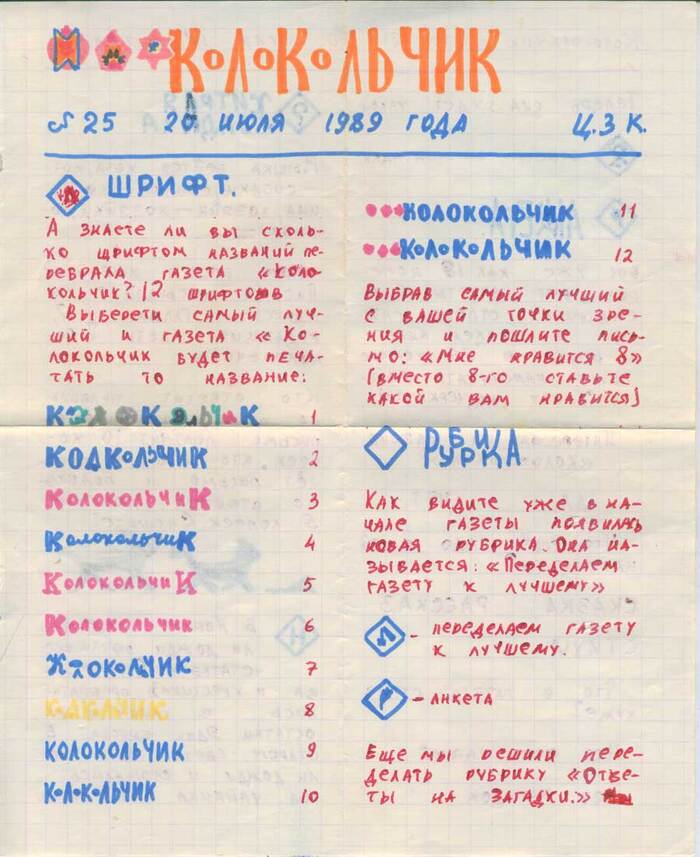 КОЛОКОЛЬЧИК
№25 20 ИЮЛЯ 1989 ГОДА Ц.3 К.
ШРИФТ.
А ЗНАЕТЕ ЛИ ВЫ СКОЛЬ-
КО ШРИФТОМ НАЗВАНИЙ ПЕ-
РЕБРАЛА ГАЗЕТА «КОЛО-
КОЛЬЧИК? 12 ШРИФТОВ
ВЫБЕРЕТИ САМЫЙ ЛУЧ-
ШИЙ И ГАЗЕТА «КО-
ЛОКОЛЬЧИК БУДЕТ ПЕЧА-
ТАТЬ ТО НАЗВАНИЕ:
КОЛОКОЛЬЧИК 1
КОЛКОЛЬЧИК 2
КОЛОКОЛЬЧИК 3
КОЛОКОЛЬЧИК 4
КОЛОКОЛЬЧИК 5
КОЛОКОЛЬЧИК 6
ОКОЛЬЧИК 7
8
КОЛОКОЛЬЧИК 9
КОЛОКОЛЬЧИК 10
КОЛОКОЛЬЧИК 11
КОЛОКОЛЬЧИК 12
ВЫБРАВ САМЫЙ ЛУЧШИЙ
С ВАШЕЙ ТОЧКИ ЗРЕ-
НИЯ И ПОШЛИТЕ ПИСЬ-
МО: «МНЕ НРАВИТСЯ 8»
(ВМЕСТО 8-ГО СТАВЬТЕ
КАКОЙ ВАМ НРАВИТСЯ)
РУБРИКА
КАК ВИДИТЕ УЖЕ В НА-
ЧАЛЕ ГАЗЕТЫ ПОЯВИЛАСЬ
НОВАЯ РУБРИКА. ОНА НА-
ЗЫВАЕТСЯ: «ПЕРЕДЕЛАЕМ
ГАЗЕТУ К ЛУЧШЕМУ»
- ПЕРЕДЕЛАЕМ ГАЗЕТУ
К ЛУЧШЕМУ.
- АНКЕТА
ЕЩЕ МЫ РЕШИЛИ ПЕРЕ-
ДЕЛАТЬ РУБРИКУ «ОТВЕ-
ТЫ НА ЗАГАДКИ.»